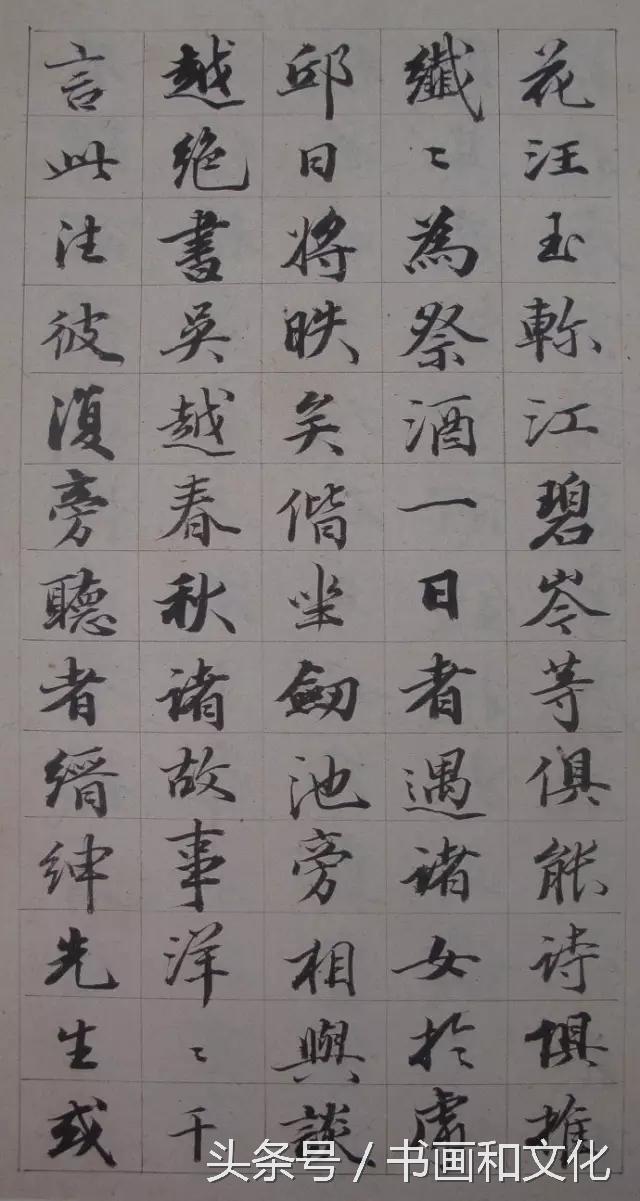 花汪玉軫江碧岑等俱能诗俱推
纖〻為祭酒一日者遇诸女於虎
邱日将昳矣偕坐劒池旁相與談
越絶書吳越春秋诸故事洋〻千
言此注彼復旁聽者縉紳先生或
头条号 / 书画和文化